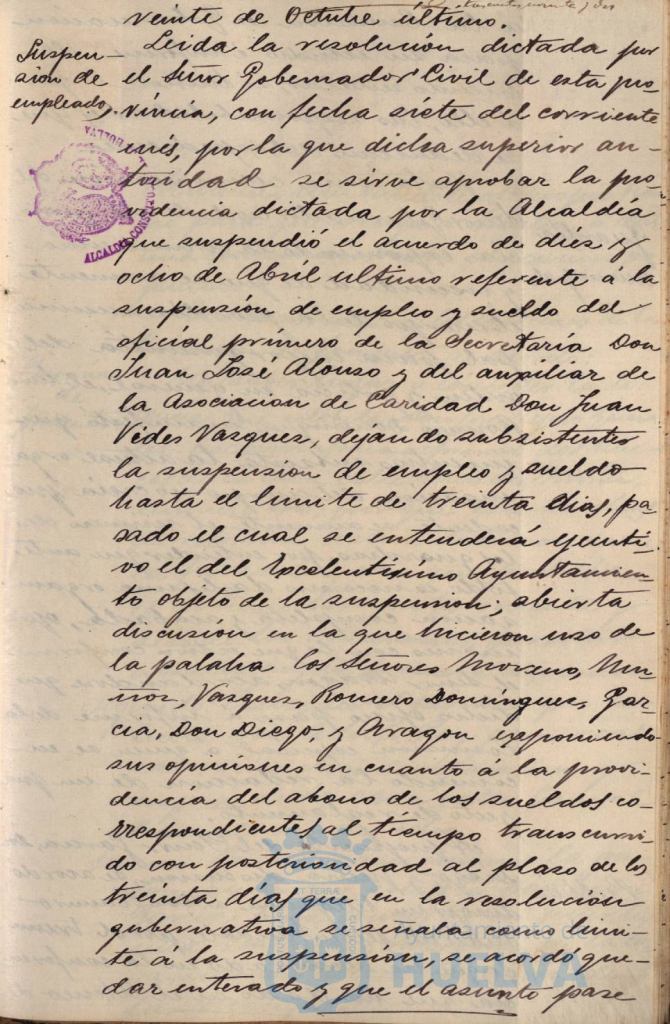 veinte de Octubre ultimo.
Suspen-
sion de
empleados.
Leida la resolución dictada por
el Señor Gobernador Civil de esta pro-
vincia, con fecha siete del corriente
mes, por la que dicha superior au-
toridad se sirve aprobar la pro-
videncia dictada por la Alcaldía
que suspendió el acuerdo de dies y
ocho de Abril ultimo referente á la
suspensión de empleo y sueldo del
oficial primero de la Secretaría Don
Juan José Alonso y del auxiliar de
la Asociacion de Caridad Don Juan
Vides Vasques, dejando subsistentes
la suspension de empleo y sueldo
hasta el limite de treinta dias, pa-
sado el cual se entenderá ejecuti-
vo el del Excelentísimo Ayuntamien-
to objeto de la suspension; abierta
discusión en la que hicieron uso de
la palabra los Señores Moreno, Mu-
ños, Vasques, Romero Domingues, Gar-
cia, Don Diego, y Aragon exponiendo
sus opiniones en cuanto á la provi-
dencia del abono de los sueldos co-
rrespondientes al tiempo transcurri-
do con posterioridad al plaso de los
treinta días que en la resolución
gubernativa se señala como limi-
te á la suspensión, se acordó que-
dar enterado y que el asunto pase
ALCALDIA CONSTITUCIONAL
HUELVA
Ayuntamiento de
HUELVA